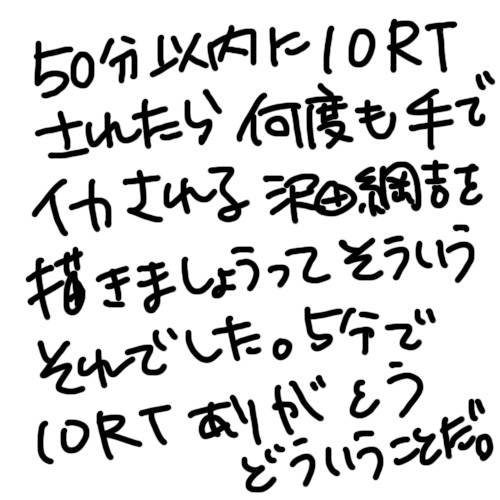 50分以内に10RT
されたら何度も手で
イカされる沢田綱吉を
描きましょうってそういう
それでした。5分で
10RTありがとう
どういうことだ。